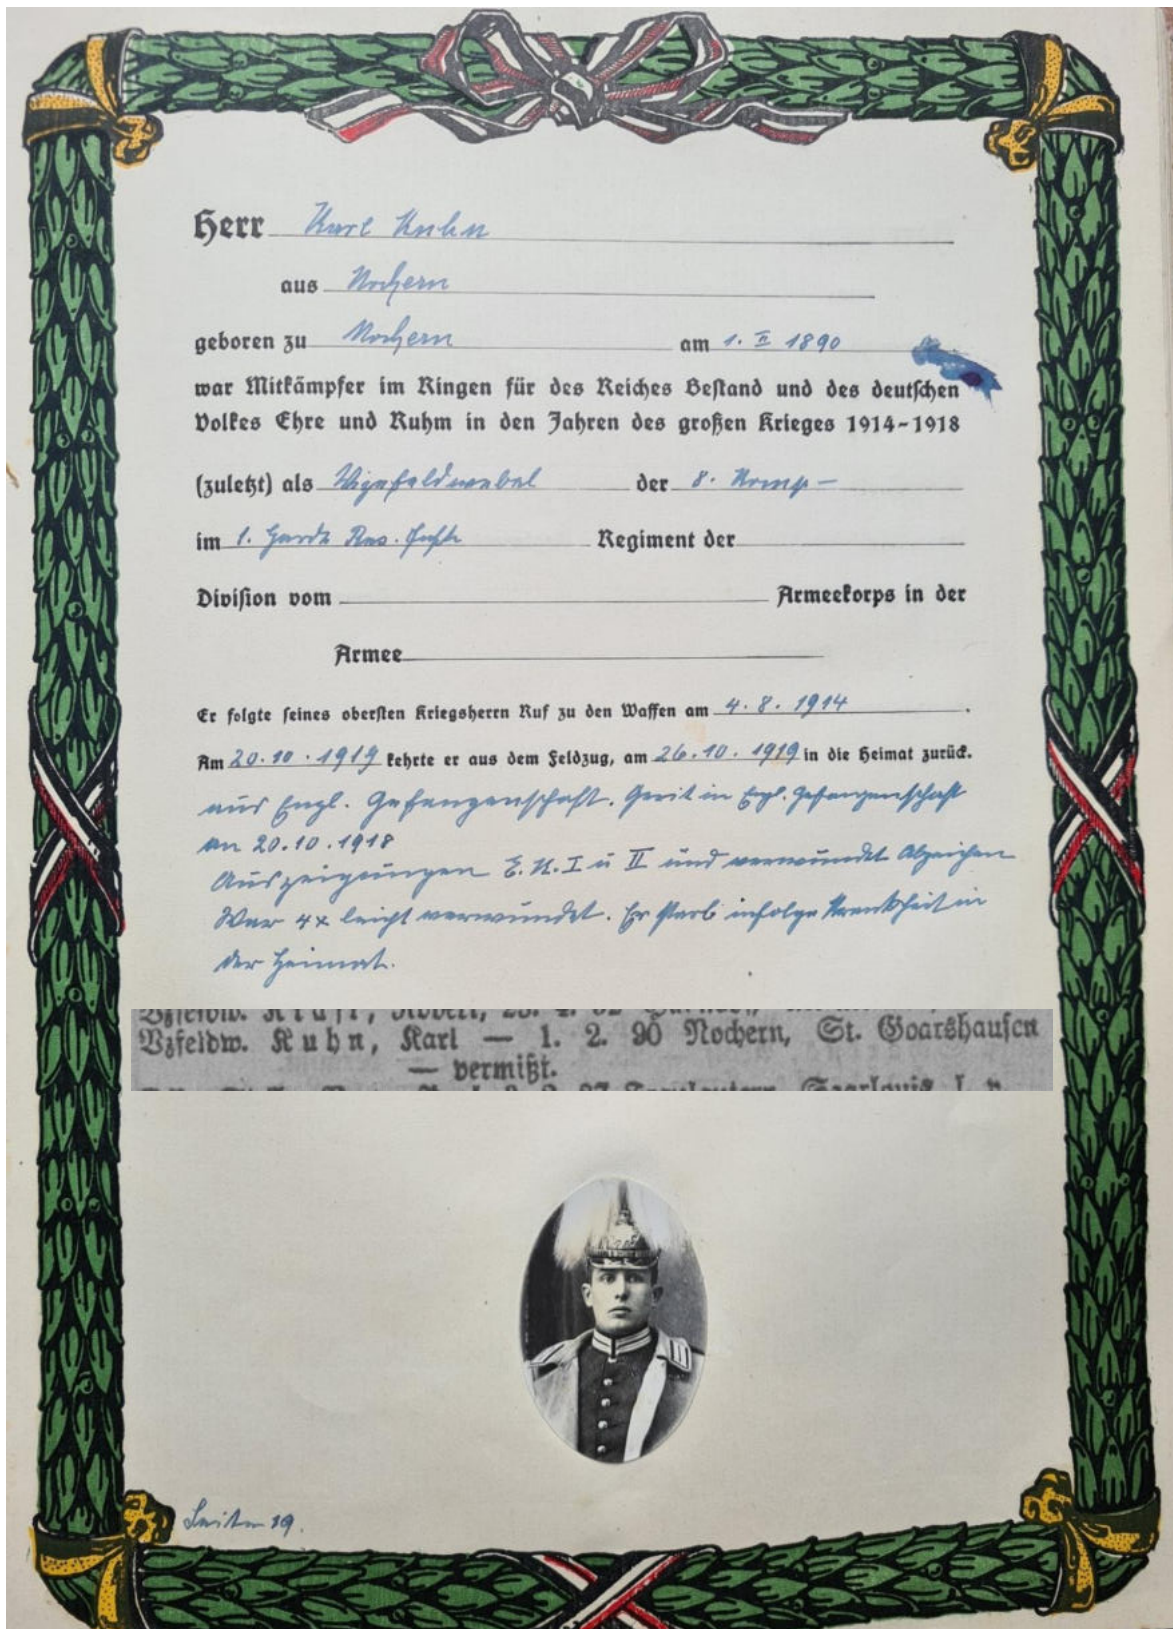 Herr Karl Kuhn
aus Nochern
geboren zu Nochern am 1. II 1890
war Mitkämpfer im Ringen für des Reiches Bestand und des deutschen
Volkes Ehre und Ruhm in den Jahren des großen Krieges 1914-1918
(zuletzt) als Vizefeldwebel der 8. Komp-
im 1. Garde Res. Regiment der
Division vom Armeekorps in der
Armee
Er folgte seines obersten Kriegsherrn Ruf zu den Waffen am 4. 8. 1914.
Am 20.10.1919 kehrte er aus dem Feldzug, am 26.10.1919 in die Heimat zurück.
aus Engl. Gefangenschaft. Geriet in Engl. Gefangenschaft
an 20.10.1918
Auszeignungen E.K. I u II und verwundet Abzeichen
War 4x leicht verwundet. Er starb infolge Krankheit in
der Heimat.
Vzfeldw. Kuhn, Karl — 1. 2. 90 Nochern, St. Goarshausen
— vermißt.
Seite 19.